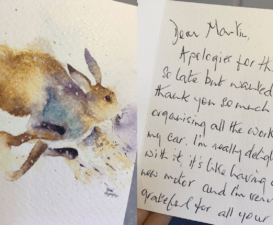 Dear Martin,
Apologies for th
so late but wanted
thank you so much
organising all the work
my car. I'm really delig
with it it's like having a
new motor and I'm ver
grateful for all your